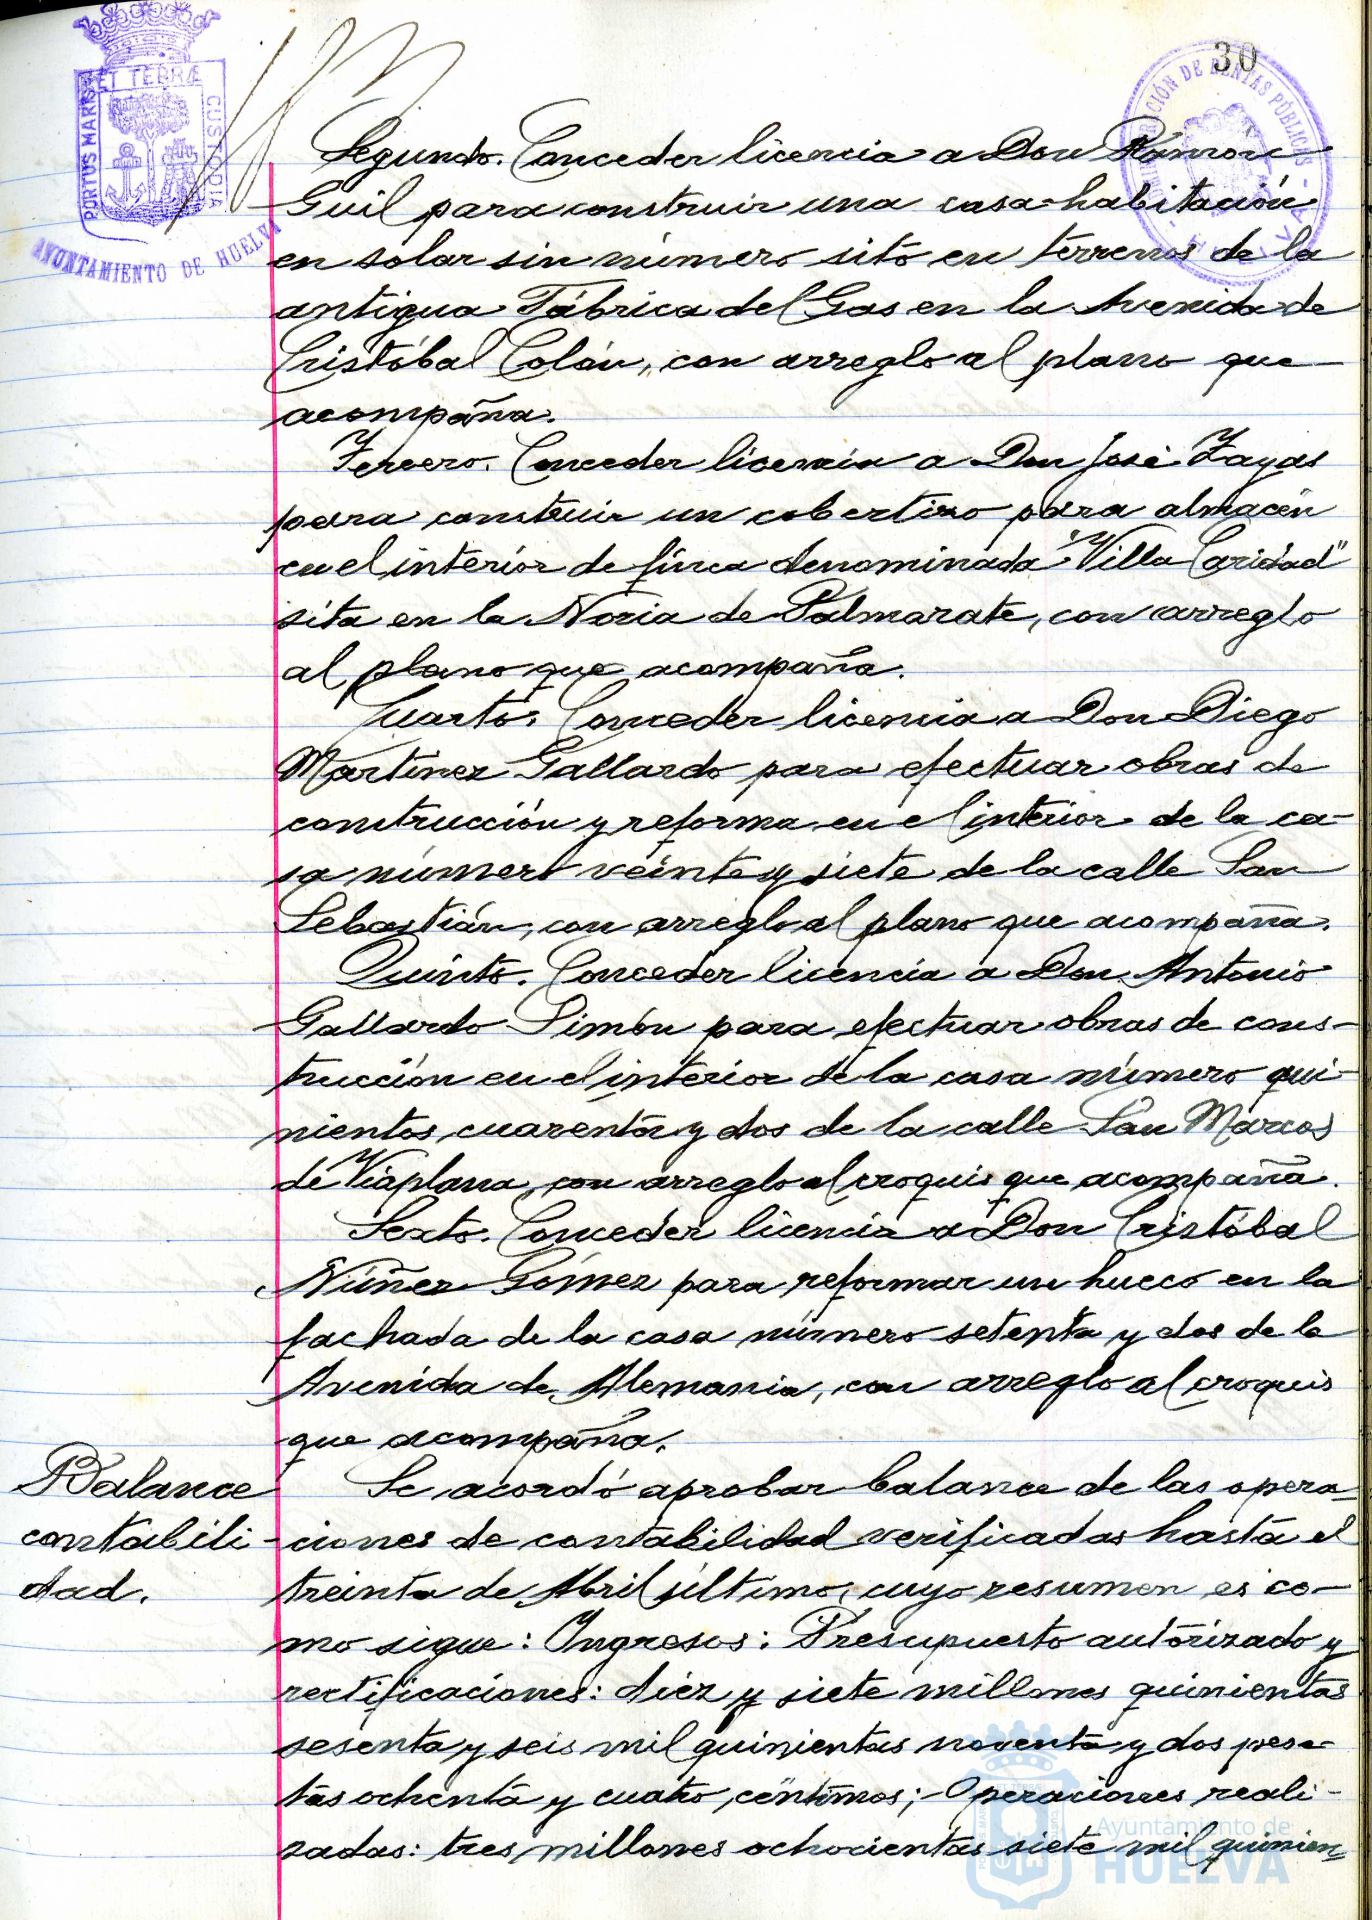 30
PORTUS MARIS ET TERRÆ CUSTODIA
AYUNTAMIENTO DE HUELVA
RENTAS PÚBLICAS
Segundo. Conceder licencia a Don Ramon
Guil para construir una casa-habitación
en solar sin número sito en terrenos de la
antigua Fábrica del Gas en la Avenida de
Cristóbal Colón, con arreglo al plano que
acompaña.
Tercero. Conceder licencia a Don José Zayas
para construir un cobertizo para almacén
en el interior de finca denominada "Villa Caridad"
sita en la Noria de Palmarate, con arreglo
al plano que acompaña.
Cuarto. Conceder licencia a Don Diego
Martínez Gallardo para efectuar obras de
construcción y reforma en el interior de la ca-
sa número veinte y siete de la calle San
Sebastián, con arreglo al plano que acompaña.
Quinto. Conceder licencia a Don Antonio
Gallardo Simón para efectuar obras de cons-
trucción en el interior de la casa número qui-
nientos cuarenta y dos de la calle San Marcos
de Viaplana, con arreglo al croquis que acompaña.
Sexto. Conceder licencia a Don Cristóbal
Núñez Gómez para reformar un hueco en la
fachada de la casa número setenta y dos de la
Avenida de Alemania, con arreglo al croquis
que acompaña.
Balance
contabili-
dad.
Se acordó aprobar balance de las opera-
ciones de contabilidad verificadas hasta el
treinta de Abril último, cuyo resumen es co-
mo sigue: Ingresos: Presupuesto autorizado y
rectificaciones: diez y siete millones quinientas
sesenta y seis mil quinientas noventa y dos pese-
tas ochenta y cuatro céntimos; Operaciones reali-
zadas: tres millones ochocientas siete mil quinien-
Ayuntamiento de
HUELVA